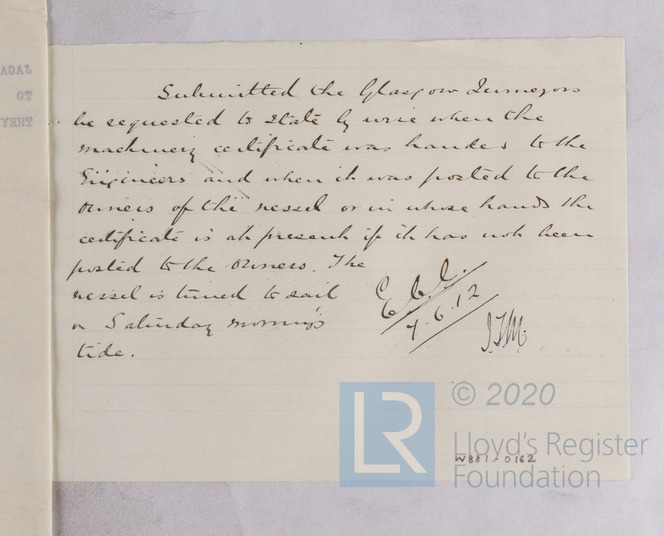 JAGA
TO
THEY
Submitted the Glasgow Surveyors
be requested to state by wire when the
machinery certificate was handed to the
Engineers and when it was posted to the
Owners of the vessel or in whose hands the
certificate is at present if it has not been
posted to the Owners. The
vessel is timed to sail
on Saturday morning's
tide.
7.6.12
J.T.M.
W881-0162
LR
© 2020
Lloyd's Register
Foundation